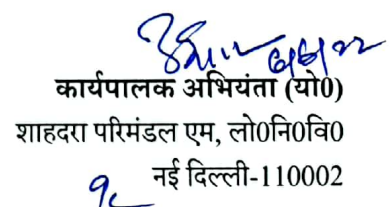 6/6/22
कार्यपालक अभियंता (यो0)
शाहदरा परिमंडल एम, लो0नि0वि0
नई दिल्ली-110002